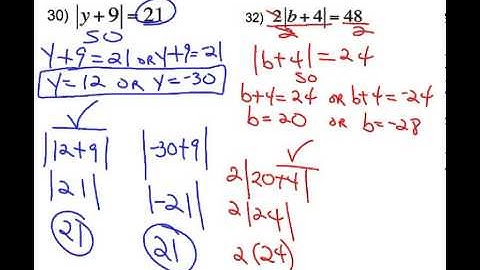 30) |y + 9| = 21
SO
y+9=21 OR y+9=-21
y=12 OR y=-30
|12+9|
|21|
21
|-30+9|
|-21|
21
32) 2|b + 4| = 48
2 2
|b+4|=24
SO
b+4=24 OR b+4=-24
b=20 OR b=-28
2|20+4|
2|24|
2(24)